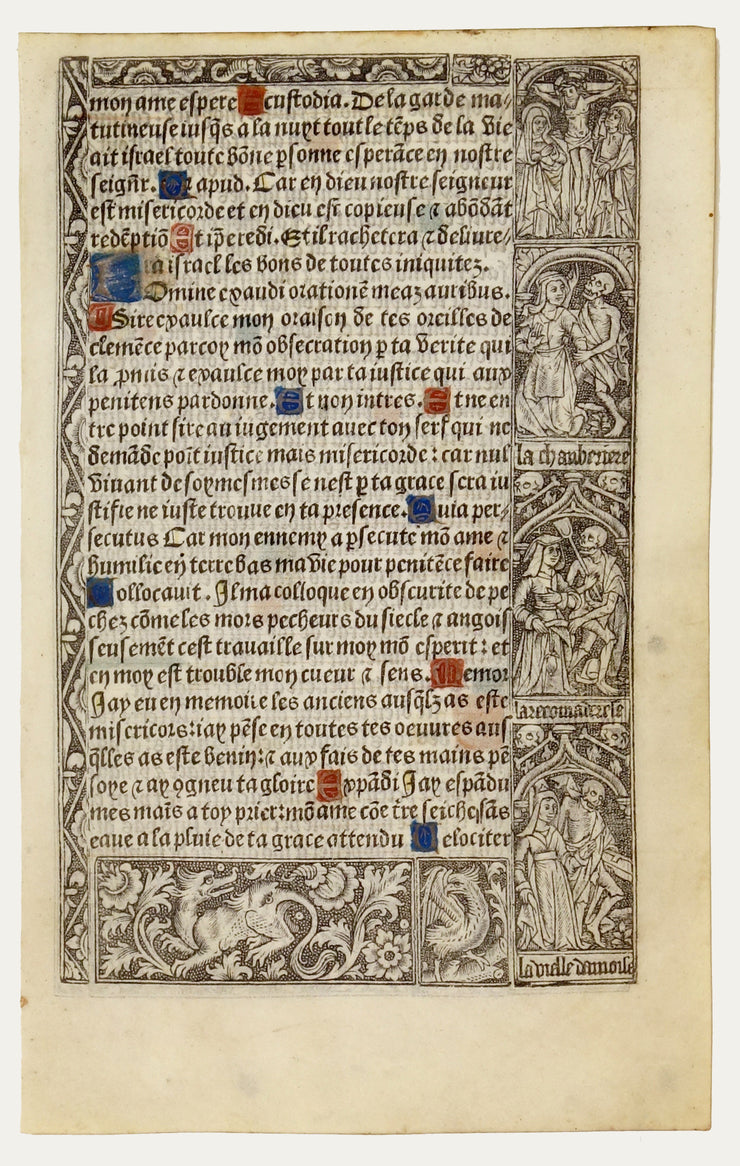 mon ame espere A custodia. De la garde ma⸗
tutineuse iusq̃s a la nuyt tout le tẽps de la vie
ait israel toute bõne psonne esperãce en nostre
seignr̃. Q apud. Car en dieu nostre seigneur
est misericorde et en dieu est copieuse ⁊ abõdãt
redẽptiõ Et ip̃e redi. Et il rachetera ⁊ deliure⸗
ra israel les bons de toutes iniquitez.
Domine exaudi orationẽ meaz auribus.
Sire exaulce mon oraison de tes oreilles de
clemẽce parcoy mõ obsecration p ta verite qui
la pmis ⁊ exaulce moy par ta iustice qui aux
penitens pardonne. Et non intres. Et ne en
tre point sire au iugement auec ton serf qui ne
demãde poit iustice mais misericorde: car nul
viuant de soymesmes se nest p ta grace sera iu
stifie ne iuste trouue en ta presence. Quia per⸗
secutus Car mon ennemy a psecute mõ ame ⁊
humilie eñ terre bas ma vie pour penitẽce faire
Collocauit. Il ma colloque en obscurite de pe
chez cõme les mors pecheurs du siecle ⁊ angois
seusemẽt cest trauaille sur moy mõ esperit: et
en moy est trouble mon cueur ⁊ sens. Memor
Jay eu en memoire les anciens ausq̃lz as este
misericors: iay pẽse en toutes tes oeuures aus
q̃lles as este benin: ⁊ aux fais de tes mains pẽ
soye ⁊ ay ꝯgneu ta gloire Expãdi Jay espãdu
mes mains a toy prier: mõ ame cõe tr̃e seiche sãs
eaue a la pluie de ta grace attendu Velociter
la chãberiere
la recõmãderesse
la vielle damoise